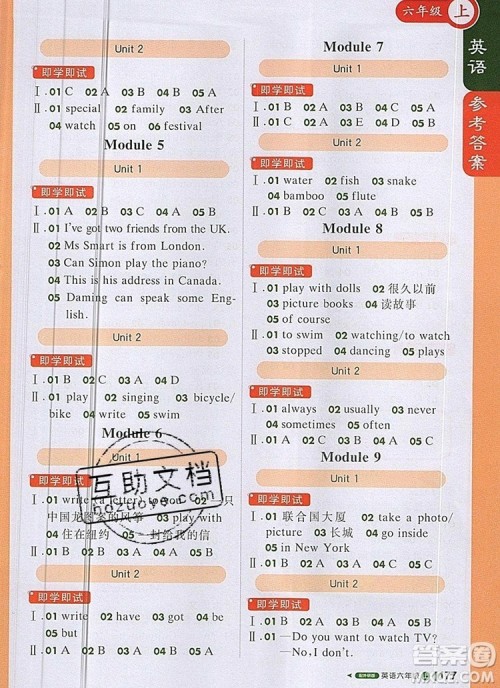 六年级 上
英语
参考答案
Unit 2
即学即试
Ⅰ.01 C 02 A 03 B 04 B 05 A
Ⅱ.01 special 02 family 03 After
04 watch 05 on 06 festival
Module 5
Unit 1
即学即试
Ⅰ.01 B 02 A 03 C 04 A 05 B
Ⅱ.01 I've got two friends from the UK.
02 Ms Smart is from London.
03 Can Simon play the piano?
04 This is his address in Canada.
05 Daming can speak some Eng-
lish.
Unit 2
即学即试
Ⅰ.01 B 02 C 03 A 04 D
Ⅱ.01 play 02 singing 03 bicycle/
bike 04 write 05 swim
Module 6
Unit 1
即学即试
Ⅰ.01 write (a letter) to 02 一只
中国龙图案的风筝 03 play with
04 住在纽约 一封给我的信
Ⅱ.01 B 02 A 03 C 04 A 05 A
Unit 2
即学即试
Ⅰ.01 write 02 have 03 got 04 be
05 but
Ⅱ.01 A 02 B 03 A 04 B 05 B
Module 7
Unit 1
即学即试
Ⅰ.01 B 02 A 03 C 04 B 05 C
Ⅱ.01 B 02 A 03 A 04 B 05 B
Unit 2
即学即试
Ⅰ.01 water 02 fish 03 snake
04 bamboo 05 flute
Ⅱ.01 B 02 A 03 A 04 A 05 B
Module 8
Unit 1
即学即试
Ⅰ.01 play with dolls 02 很久以前
03 picture books 04 读故事
05 of course
Ⅱ.01 to swim 02 watching/to watch
03 stopped 04 dancing 05 plays
Unit 2
即学即试
Ⅰ.01 always 02 usually 03 never
04 sometimes 05 often
Ⅱ.01 B 02 A 03 B 04 A 05 B
Module 9
Unit 1
即学即试
Ⅰ.01 联合国大厦 02 take a photo/
picture 03 长城 04 go inside
05 in New York
Ⅱ.01 B 02 B 03 A 04 B 05 A
Unit 2
即学即试
Ⅰ.01 B 02 A 03 B 04 A
Ⅱ.—Do you want to watch TV?
—No, I don't.
英语六年
互助文档
hdzuoye.com
答案圈